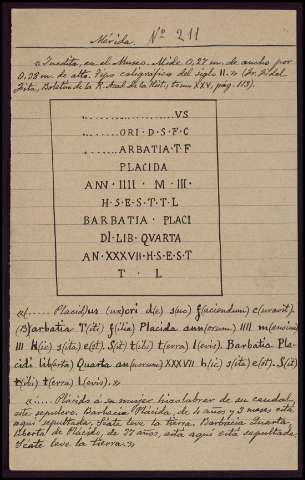 Mérida. Nº 211
«Inedita, en el Museo. Mide 0,27 m. de ancho por
0,38 m. de alto. Tipo caligráfico del siglo II.» (Sr. Fidel
Fita, Boletín de la R. Acad. de la Hist., tomo XXV, pág. 113).
..............VS
........ORI · D · S · F · C
........ARBATIA · T F
PLACIDA
ANN · IIII · M · III ·
H · S · E · S · T · T · L
BARBATIA · PLACI
DI · LIB · QVARTA
AN · XXXVII · H · S · E · S T
T · L
«(...... Placid)us (ux)ori d(e) s(uo) f(aciendum) c(uravit).
(B)arbatia T(iti) f(ilia) Placida ann(orum) IIII m(ensium)
III h(ic) s(ita) e(st). S(it) t(ibi) t(erra) l(evis). Barbatia Pla-
cidi lib(erta) Quarta an(norum) XXXVII h(ic) s(ita) e(st). S(it)
t(ibi) t(erra) l(evis).»
«...... Plácido á su mujer hizo labrar de su caudal
este sepulcro. Barbacia Plácida, de 4 años y 3 meses está
aquí sepultada. Séate leve la tierra. Barbacia Quarta,
liberta de Plácido, de 37 años, está aquí está sepultada.
Séate leve la tierra.»